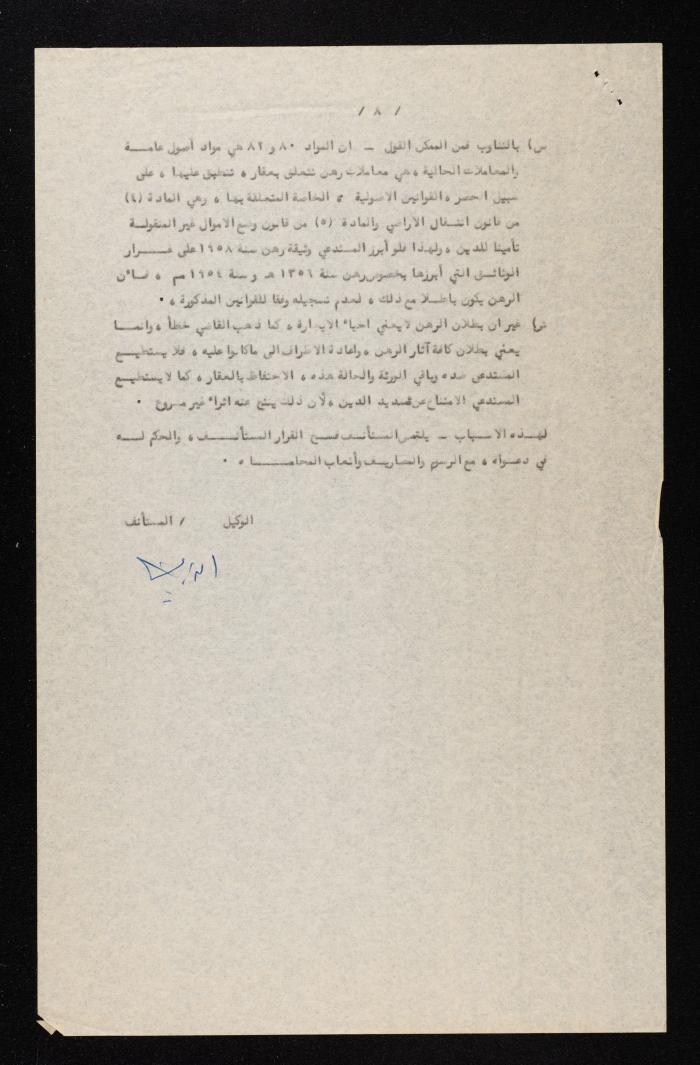 / ٨ /
س) بالتناوب فمن الممكن القول ـ ان المواد ٨٠ و ٨٢ هي مواد أصول عامــة
والمعاملات الحالية ، هي معاملات رهن تتعلق بعقار ، تنطبق عليها ، على
سبيل الحصر ، القوانين الاصولية الخاصة المتعلقة بها ، وهي المادة (٤)
من قانون انتقال الاراضي والمادة (٥) من قانون وضع الاموال غير المنقولة
تأمينا للدين ، ولهذا فلو أبرز المستدعي وثيقة رهن سنة ١٩٥٨ على غـــرار
الوثائـق التي أبرزها بخصوص رهن سنة ١٣٥٦ هـ و سنة ١٩٥٤ م ، فــان
الرهن يكون باطــلا مع ذلك ، لعدم تسجيله وفقا للقوانين المذكورة .
غير ان بطلان الرهن لا يعني احياء الاجارة ، كما ذهب القاضي خطأ ، وانمــا
يعني بطلان كافة آثار الرهن ، واعادة الاطراف الى ما كانوا عليه ، فلا يستطيــع
المستدعى ضده وباقي الورثة والحالة هذه ، الاحتفاظ بالعقار ، كما لا يستطيــع
المستدعي الامتناع عن تسديد الدين ، لأن ذلك ينتج عنه اثراء غير مشروع .
لهــذه الاسبــاب ـ يلتمس المستأنــف فســخ القرار المستأنــــف ، والحكم لــه
في دعــواه ، مع الرسوم والمصاريــف وأتعاب المحامـــــاه .
الوكيل / المستأنف